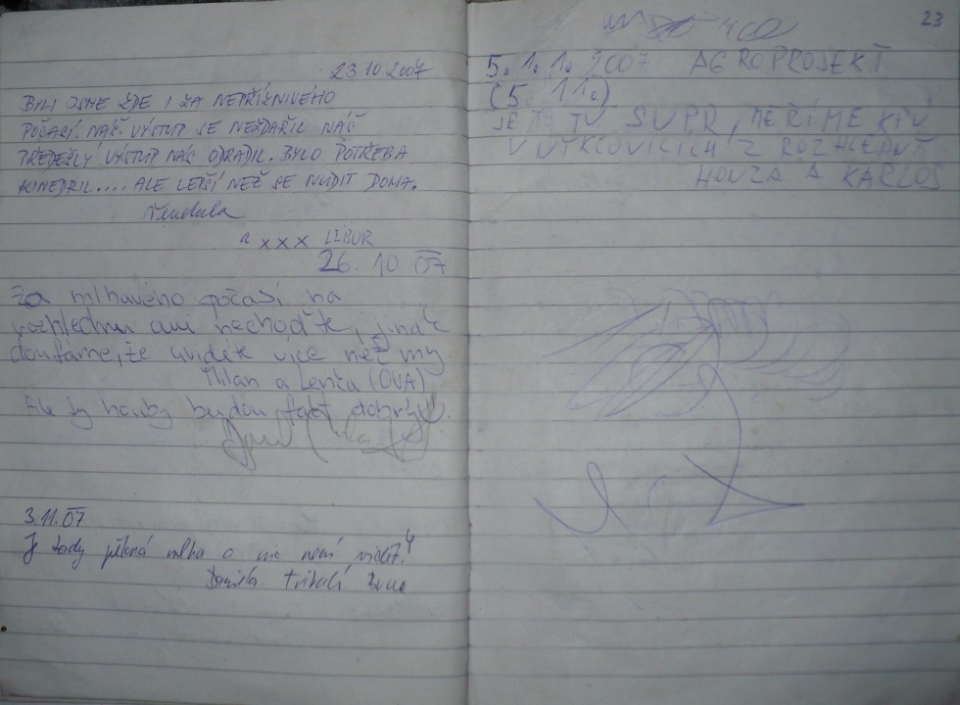 23.10.2007
BYLI JSME ZDE I ZA NEPŘÍZNIVÉHO
POČASÍ. NÁŠ VÝSTUP SE NEZDAŘIL NÁŠ
PŘEDEŠLÝ VÝSTUP NÁS ODRADIL. BYLO POTŘEBA
KINEDRIL.... ALE LEPŠÍ NEŽ SE NUDIT DOMA.
a xxx LIBUR
26. 10 07
Za mlhavého počasí na
rozhlednu ani nechoďte, jinak
doufáme, že uvidíte více než my
Milan a Lenka (OVA)
Ale ty houby budou fakt dobrý
3.11.07
Je tady pěkná mlha a nic není vidět.
Daniela
23
5. 1. 1. 2007 AGROPROJEKT
(5. 11.)
JE TO TU SUPR, MĚŘÍME KPÚ
V Z ROZHLEDNY
HONZA A KARLOS